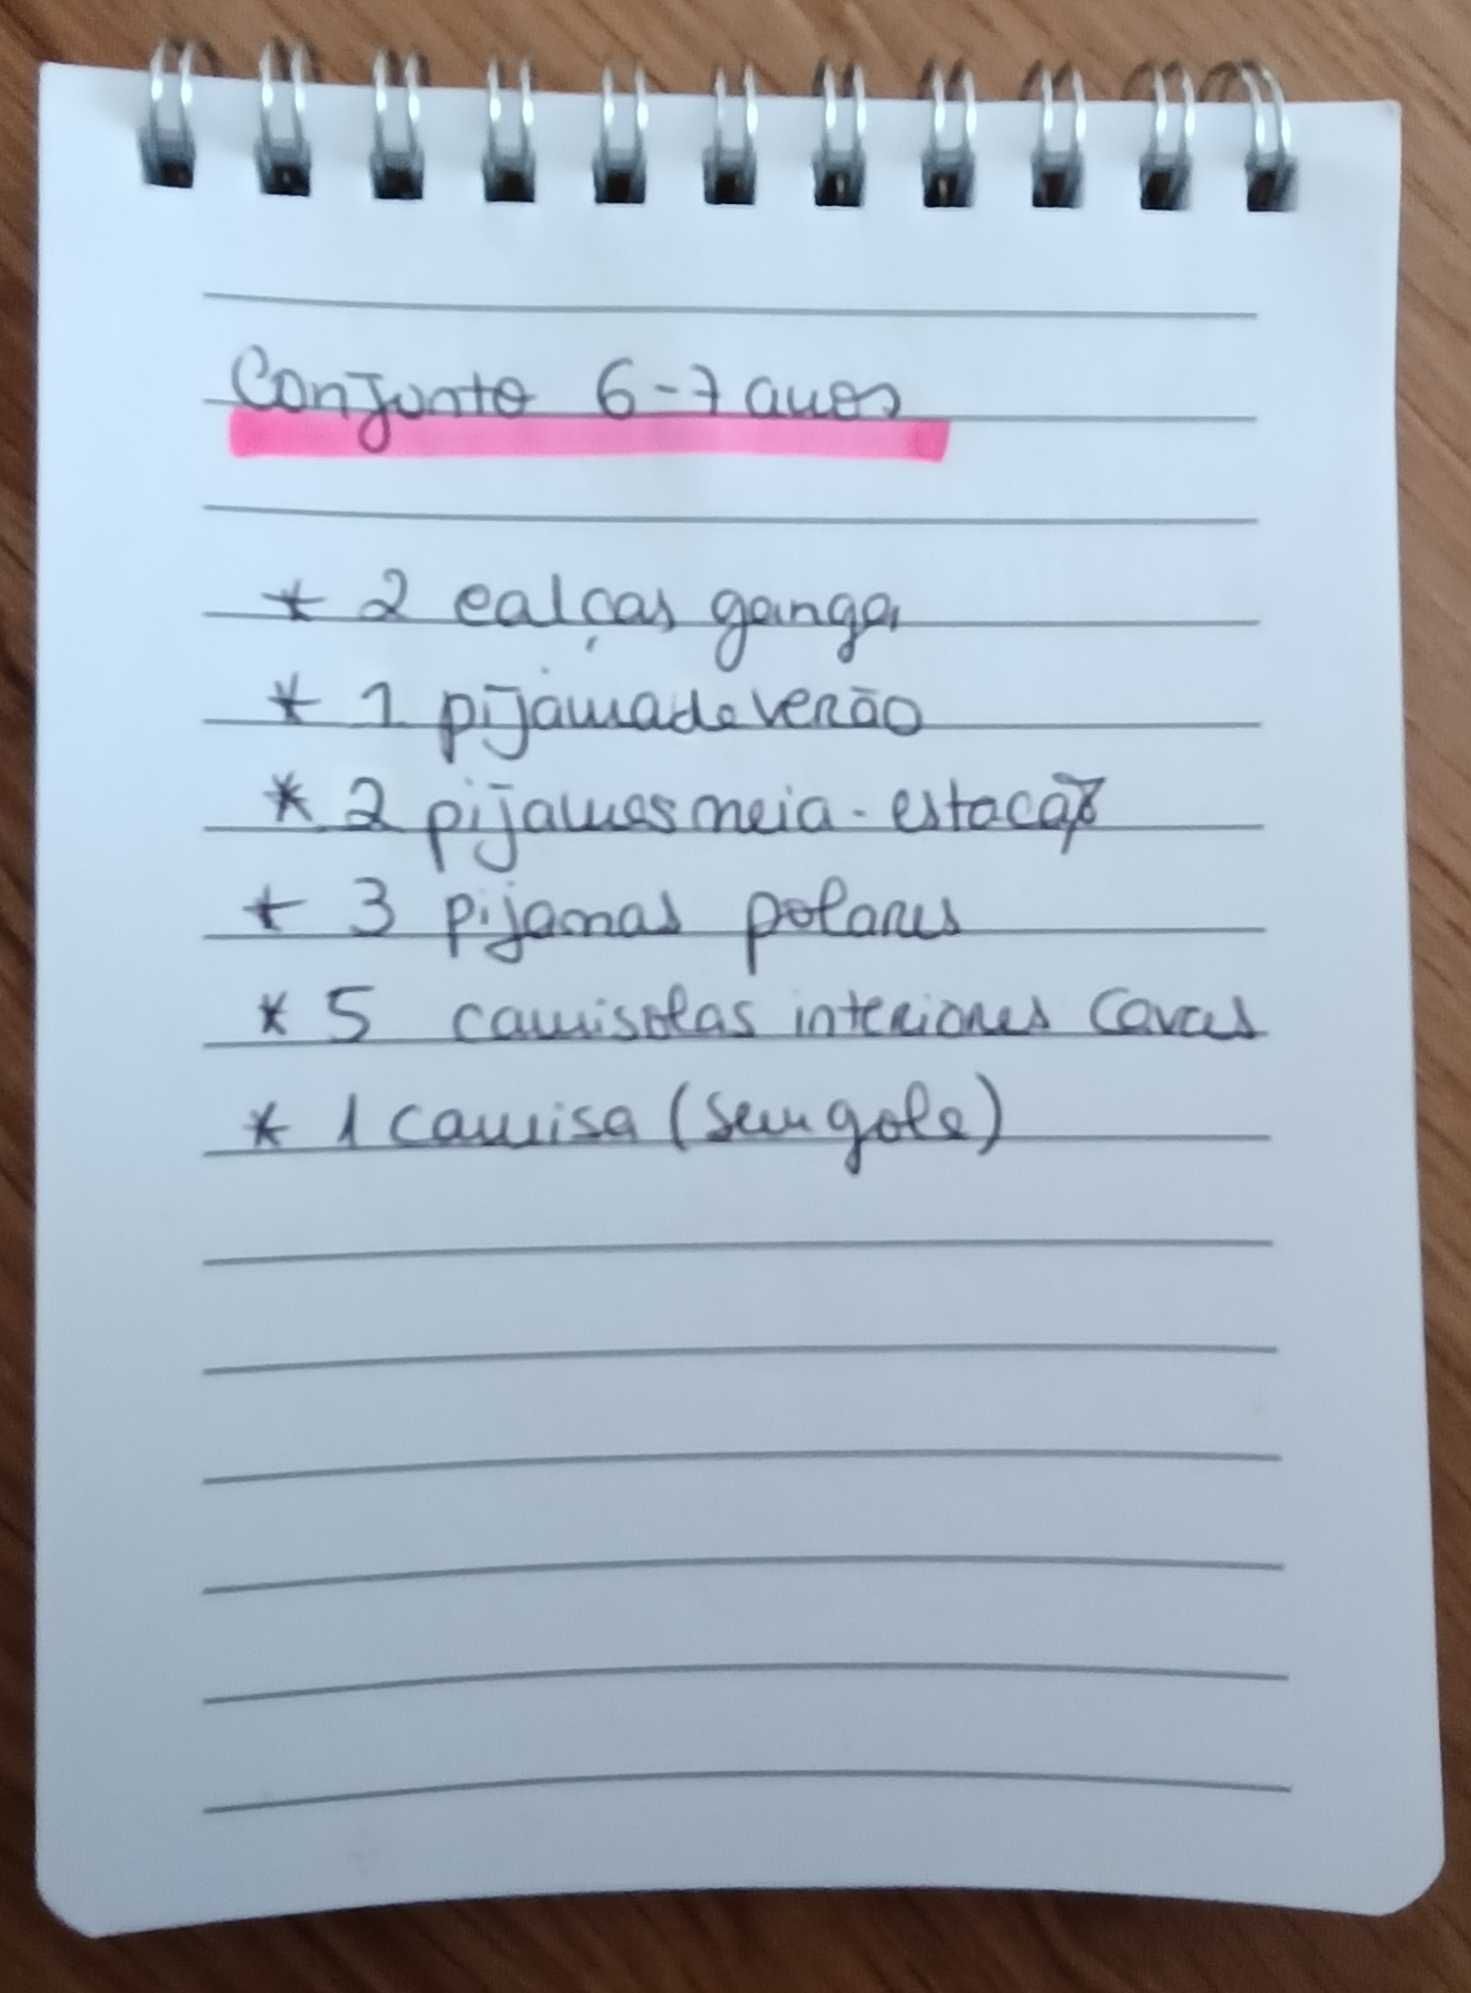 Conjunto 6-7 anos
* 2 calças ganga
* 1 pijama de verão
* 2 pijamas meia-estação
* 3 pijamas polares
* 5 camisolas interiores cavas
* 1 camisa (sem gola)